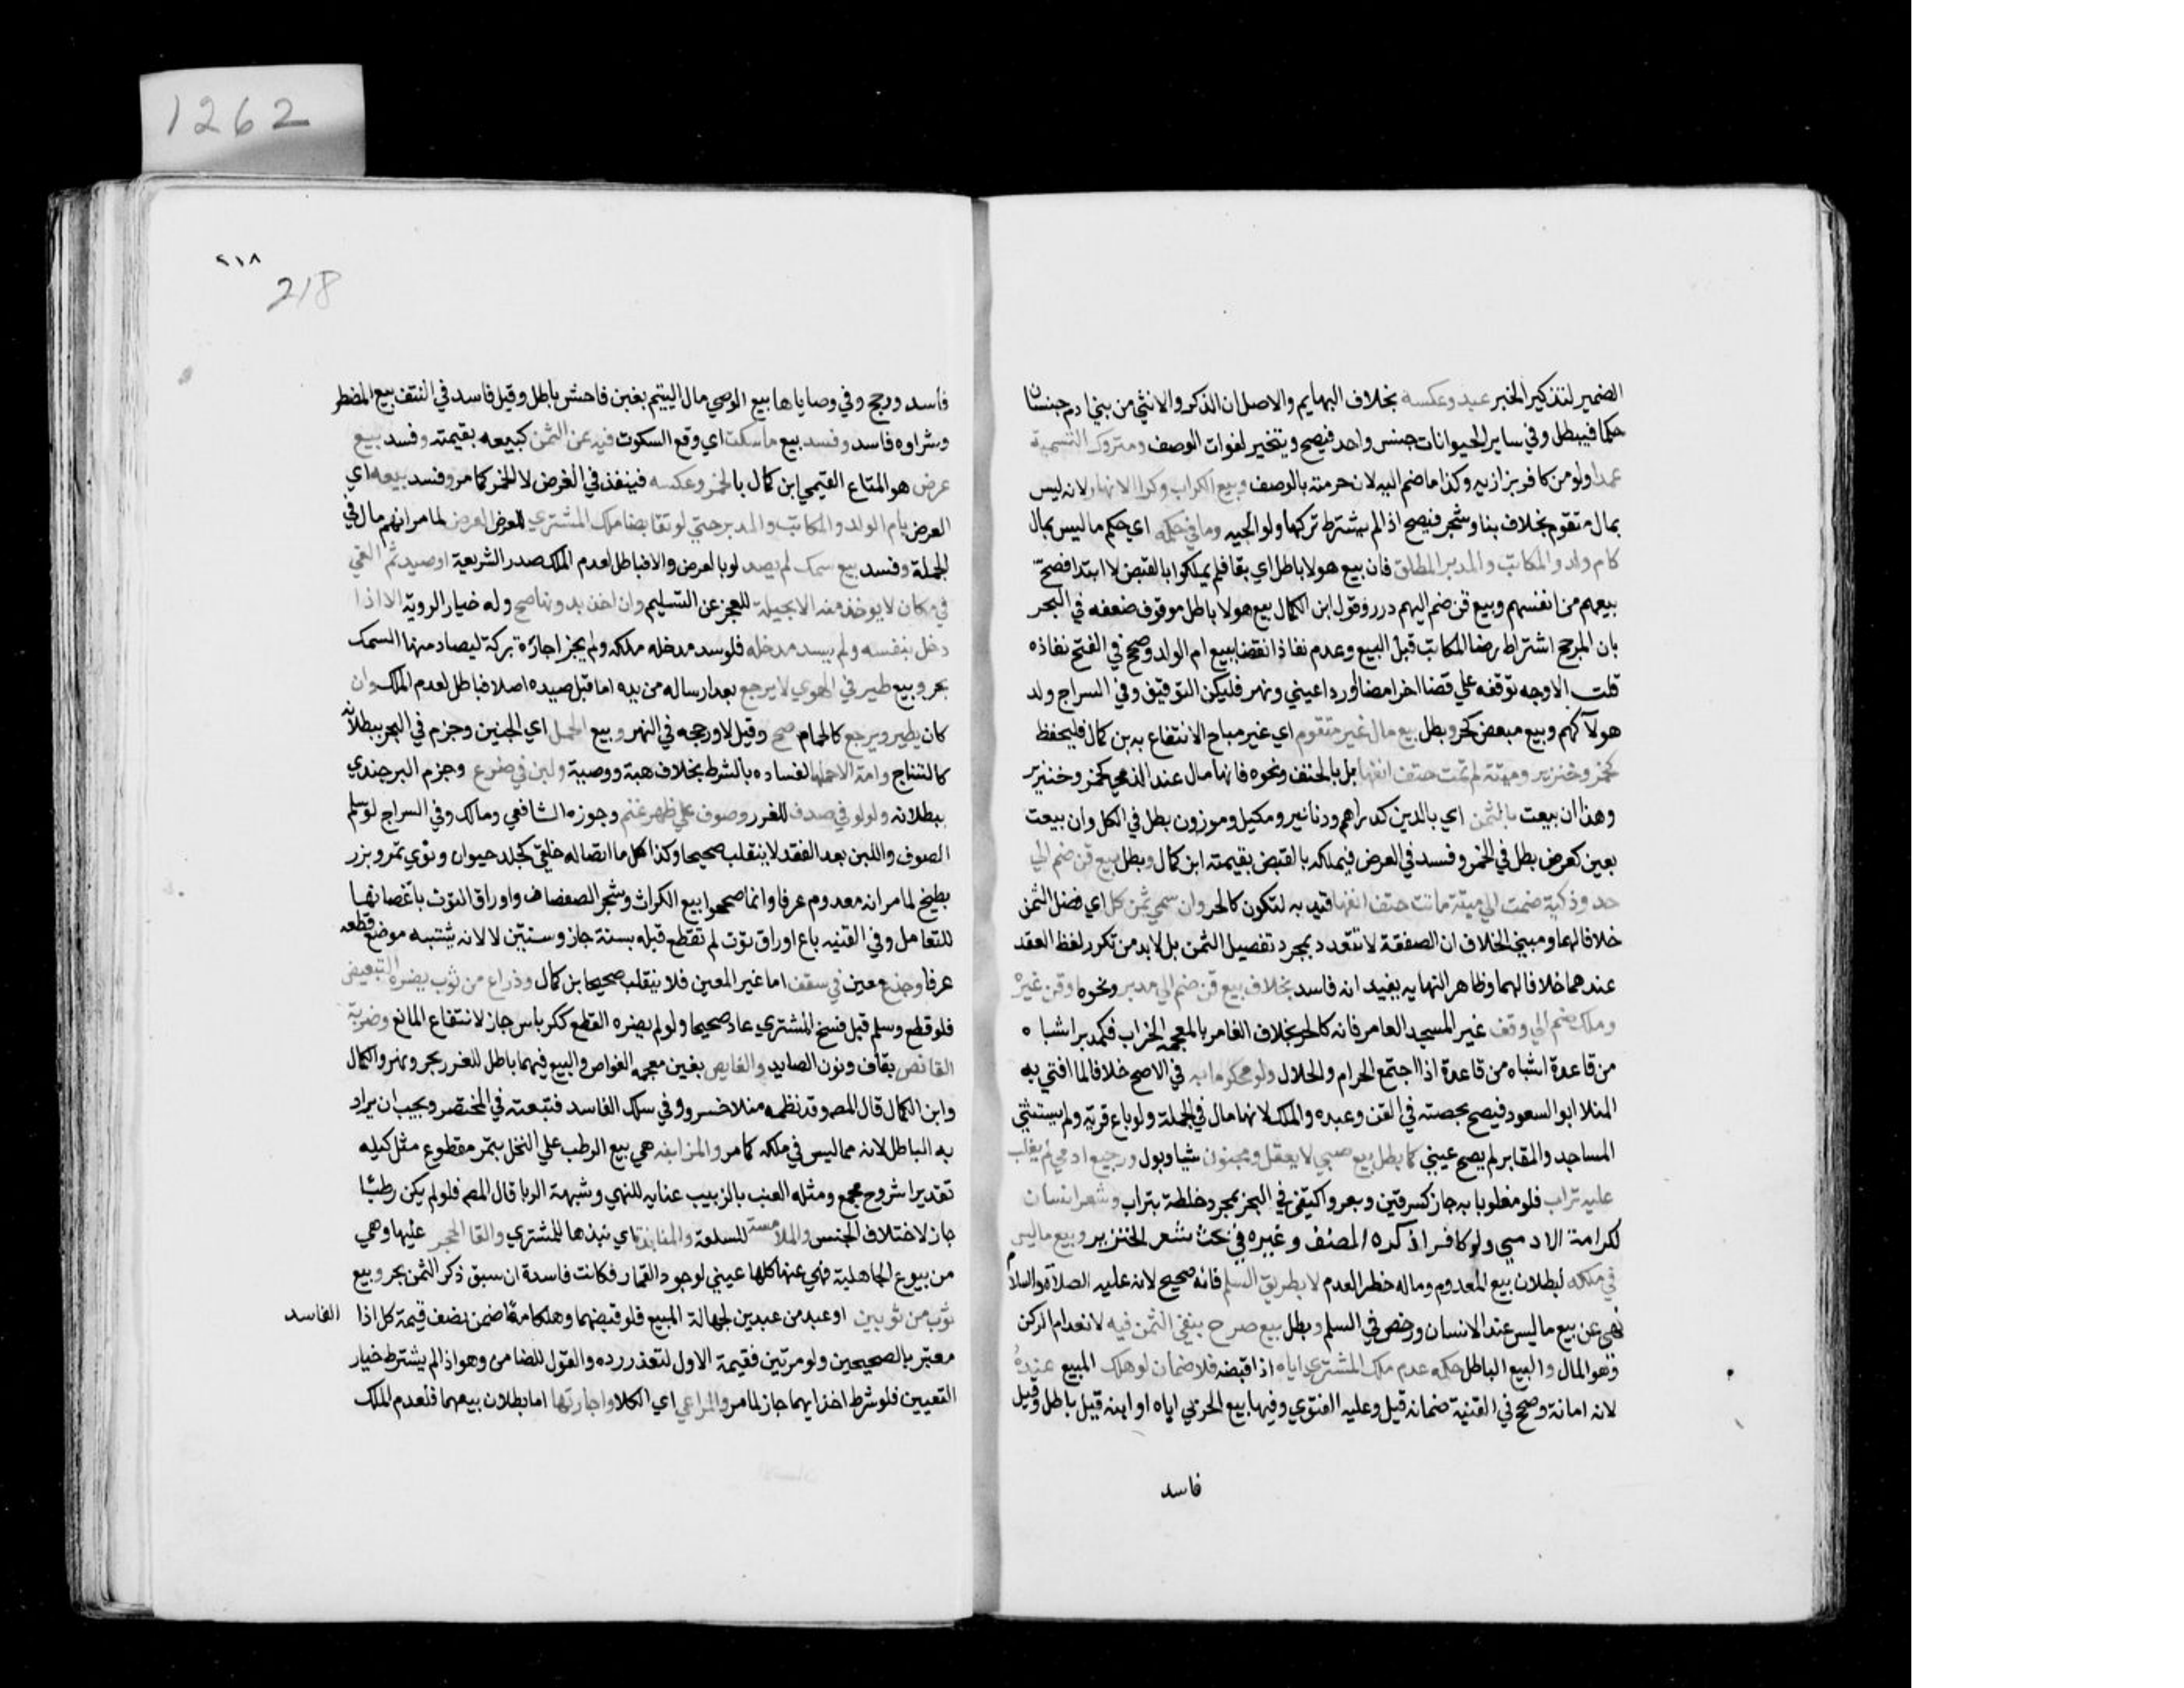 1262
الضمير لتذكير الخبر عبد وعكسه بخلاف البهايم والاصل ان الذكر والانثي من بني ادم جنسان
حكما فيبطل وفي ساير الحيوانات جنس واحد فيصح ويتخير لفوات الوصف ومتروك التسمية
عمدا ولو من كافر بزازيه وكذا ما ضم اليه لان حرمته بالوصف وبيع الكراب وكرا الانهار لانه ليس
بمال متقوم بخلاف بنا وشجر فيصح اذا لم يشترط تركها ولوالجيه وما في حكمه اي حكم ما ليس بمال
كام ولد والمكاتب والمدبر المطلق فان بيع هولا باطل اي بقا فلم يملكوا بالقبض لا ابتدا فصح
بيعهم من انفسهم وبيع قن ضم اليهم درر وقول ابن الكمال بيع هولا باطل موقوف ضعفه في البحر
بان المرجح اشتراط رضا المكاتب قبل البيع وعدم نفاذ القضا ببيع ام الولد وصحح في الفتح نفاذه
قلت الاوجه توقفه علي قضا اخر امضا او ردا عيني ونهر فليكن التوفيق وفي السراج ولد
هولا كهم وبيع مبعض كحر وبطل بيع مال غير متقوم اي غير مباح الانتفاع به بن كمال فليحفظ
كخمر وخنزير وميتة لم تمت حتف انفها بل بالخنق ونحوه فانها مال عند الذمي كخمر وخنزير
وهذا ان بيعت بالثمن اي بالدين كدراهم ودنانير ومكيل وموزون بطل في الكل وان بيعت
بعين كعرض بطل في الخمر وفسد في العرض فيملكه بالقبض بقيمته ابن كمال وبطل بيع قن ضم الي
حر وذكية ضمت الي ميتة ماتت حتف انفها قيد به لتكون كالحر وان سمي ثمن كل اي فصل الثمن
خلافا لهما ومبني الخلاف ان الصفقة لا تتعدد بمجرد تفصيل الثمن بل لابد من تكرر لفظ العقد
عندهما خلافا لهما وظاهر النهايه يفيد انه فاسد بخلاف بيع قن ضم الي مدبر ونحوه او قن غيره
وملك ضم الي وقف غير المسجد العامر فانه كالحر بخلاف الغامر بالمعجمه الخراب فكمدبر اشباه
من قاعدة اشباه من قاعدة اذا اجتمع الحرام والحلال ولو محكوما به في الاصح خلافا لما افتي به
المنلا ابو السعود فيصح بحصته في القن وعبده والملك لانها مال في الجملة ولو باع قرية ولم يستثني
المساجد والمقابر لم يصح عيني كما بطل بيع صبي لا يعقل ومجنون شيا وبول ورجيع ادمي لم يغلب
عليه تراب فلو مغلوبا به جاز كسرقين وبعر واكتفي في البحر بمجرد خلطه بتراب وشعر انسان
لكرامة الادمي ولو كافرا ذكره المصنف وغيره في بحث شعر الخنزير وبيع ما ليس
في ملكه لبطلان بيع المعدوم وماله خطر العدم لا بطريق السلم فانه صحيح لانه عليه الصلاة والسلام
نهي عن بيع ما ليس عند الانسان ورخص في السلم وبطل بيع صرح بنفي الثمن فيه لانعدام الركن
وهو المال والبيع الباطل حكمه عدم ملك المشتري اياه اذا قبضه فلا ضمان لو هلك المبيع عنده
لانه امانة وصحح في القنية ضمانه قيل وعليه الفتوي وفيها بيع الحربي اياه او ابنه قيل باطل وقيل
فاسد
٢١٨
218
فاسد ورجح وفي وصاياها بيع الوصي مال اليتيم بغبن فاحش باطل وقيل فاسد في النتف بيع المضطر
وشراوه فاسد وفسد بيع ما سكت اي وقع السكوت فيه عن الثمن كبيعه بقيمته وفسد بيع
عرض هو المتاع القيمي ابن كمال بالخمر وعكسه فينفذ في العرض لا الخمر كما مر وفسد بيعه اي
العرض بام الولد والمكاتب والمدبر حتي لو تقابضا ملك المشتري للعرض العرض لما مر انهم مال في
الجملة وفسد بيع سمك لم يصد لو بالعرض والا فباطل لعدم الملك صدر الشريعة او صيد ثم القي
في مكان لا يوخذ منه الا بحيلة للعجز عن التسليم وان اخذ بدونها صح وله خيار الروية الا اذا
دخل بنفسه ولم يسد مدخله فلو سد مدخله ملكه ولم يجز اجارة بركة ليصاد منها السمك
بحر وبيع طير في الهوي لا يرجع بعد ارساله من يده اما قبل صيده اصلا فباطل لعدم الملك وان
كان يطير ويرجع كالحمام صح وقيل لا ورجحه في النهر وبيع الحمل اي الجنين وجزم في البحر ببطلانه
كالنتاج وامة الا حملها لفساده بالشرط بخلاف هبة ووصية ولبن في ضرع وجزم البرجندي
ببطلانه ولولو في صدف للغرر وصوف علي ظهر غنم وجوزه الشافعي ومالك وفي السراج لو سلم
الصوف واللبن بعد العقد لا ينقلب صحيحا وكذا كل ما اتصاله خلقي كجلد حيوان ونوي تمر وبزر
بطيخ لما مر انه معدوم عرفا وانما صححوا بيع الكراث وشجر الصفصاف واوراق التوت باغصانها
للتعامل وفي القنيه باع اوراق توت لم تقطع قبله بسنة جاز وسنتين لا لانه يشتبه موضع قطعه
عرفا وجذع معين في سقف اما غير المعين فلا ينقلب صحيحا بن كمال وذراع من ثوب يضره التبعيض
فلو قطع وسلم قبل فسخ المشتري عاد صحيحا ولو لم يضره القطع ككرباس جاز لانتفاع المانع وضربة
القانص بقاف ونون الصايد والغايص بغين معجمه الغواص والبيع فيهما باطل للغرر بحر ونهر والكمال
وابن الكمال قال المصـ وقد نظمه منلا خسرو في سلك الفاسد فتبعته في المختصر ويجب ان يراد
به الباطل لانه مما ليس في ملكه كما مر والمزابنه هي بيع الرطب علي النخل بتمر مقطوع مثل كيله
تقديرا شروح مجمع ومثله العنب بالزبيب عنايه للنهي وشبهة الربا قال المصـ فلو لم يكن رطبا
جاز لاختلاف الجنس والملامسة للسلعة والمنابذة اي نبذها للمشتري والقا الحجر عليها وهي
من بيوع الجاهلية فنهي عنها كلها عيني لوجود القمار فكانت فاسدة ان سبق ذكر الثمن بحر وبيع
ثوب من ثوبين او عبد من عبدين لجهالة المبيع فلو قبضهما وهلكا معا ضمن نصف قيمة كل اذا الفاسد
معتبر بالصحيحين ولو مرتين فقيمة الاول لتعذر رده والقول للضامن وهو اذا لم يشترط خيار
التعيين فلو شرط اخذ ايهما جاز لما مر والمراعي اي الكلا واجارتها اما بطلان بيعهما فلعدم الملك